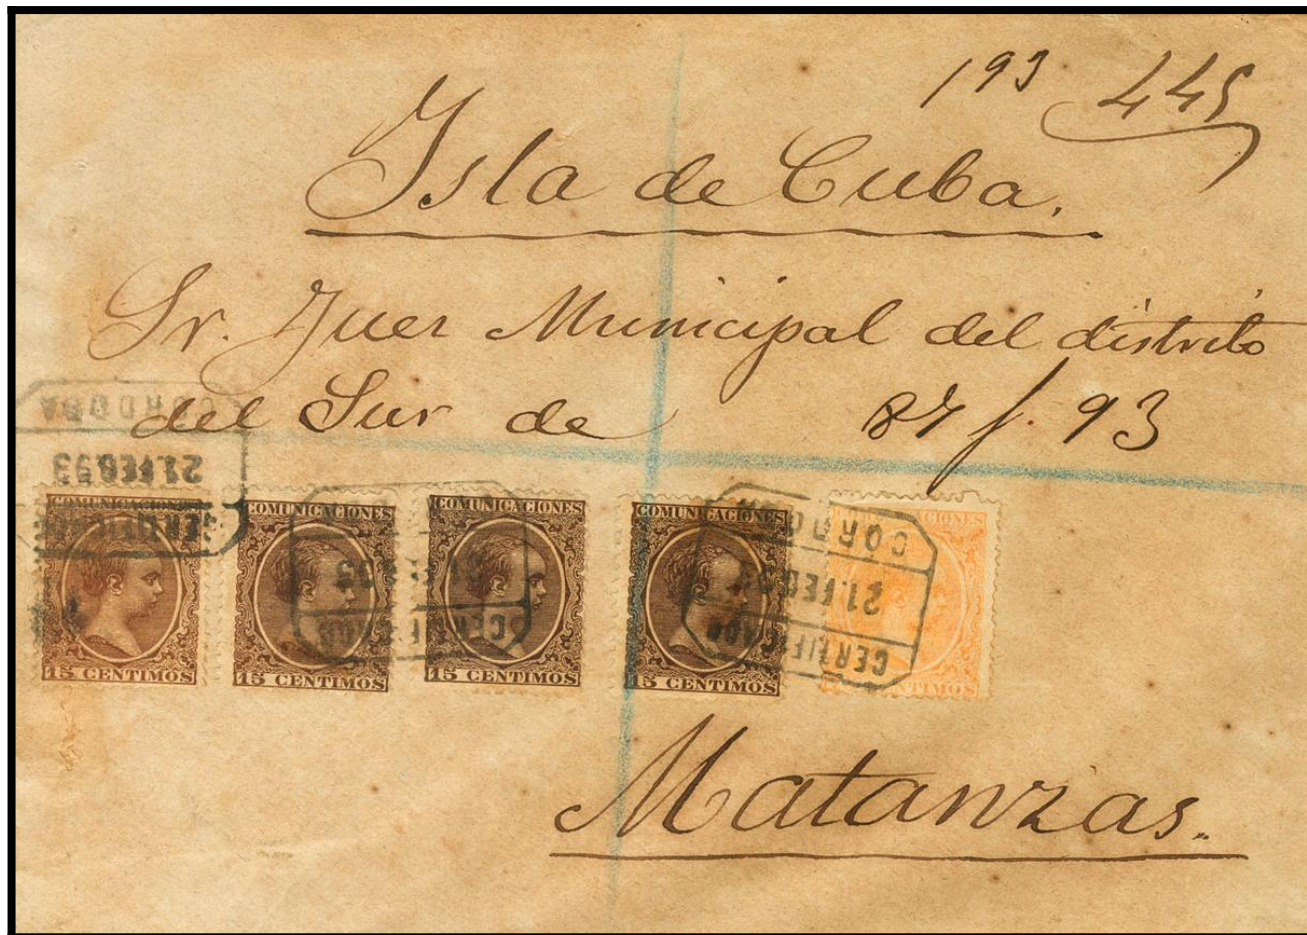 193 445
Isla de Cuba.
Sr. Juez Municipal del distrito
del Sur de 87 f. 93
CORDOBA
21.FEB.93
CERTIFICADO
COMUNICACIONES
15 CENTIMOS
COMUNICACIONES
15 CENTIMOS
COMUNICACIONES
15 CENTIMOS
CERTIFICADO
COMUNICACIONES
15 CENTIMOS
CORDO
21.FEB.93
CERTIFICADO
CIONES
CENTIMOS
Matanzas.